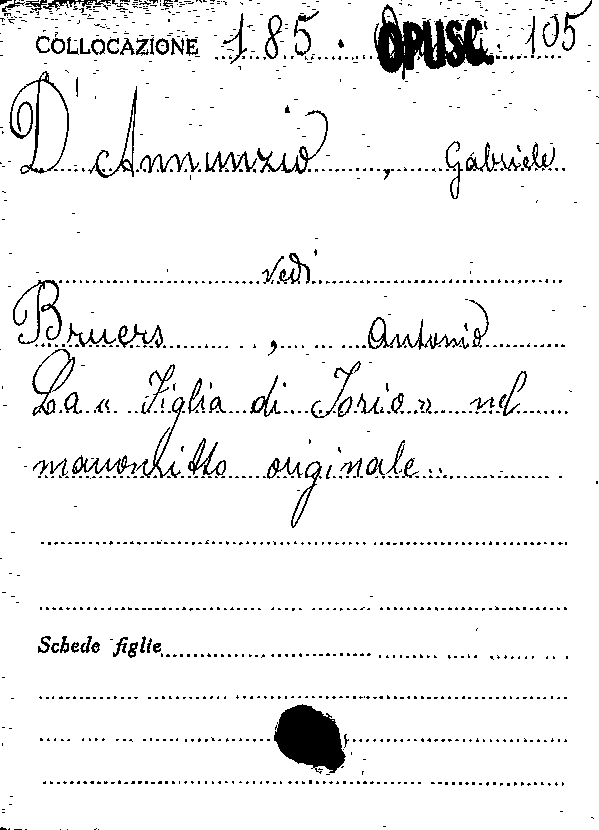 COLLOCAZIONE 185. OPUSC. 105
D'Annunzio, Gabriele
vedi
Bruers, Antonio
La « Figlia di Iorio » nel
manoscritto originale..
Schede figlie